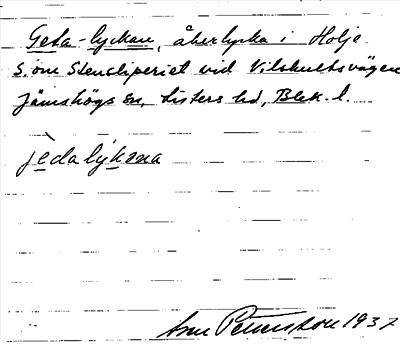 Geta-lyckan, åkerlycka i Holje
S. om Stensliperiet vid Vilshultsvägen
Jämshögs sn, Listers hd, Blek. l.
jedalykana
Pettersson 1937